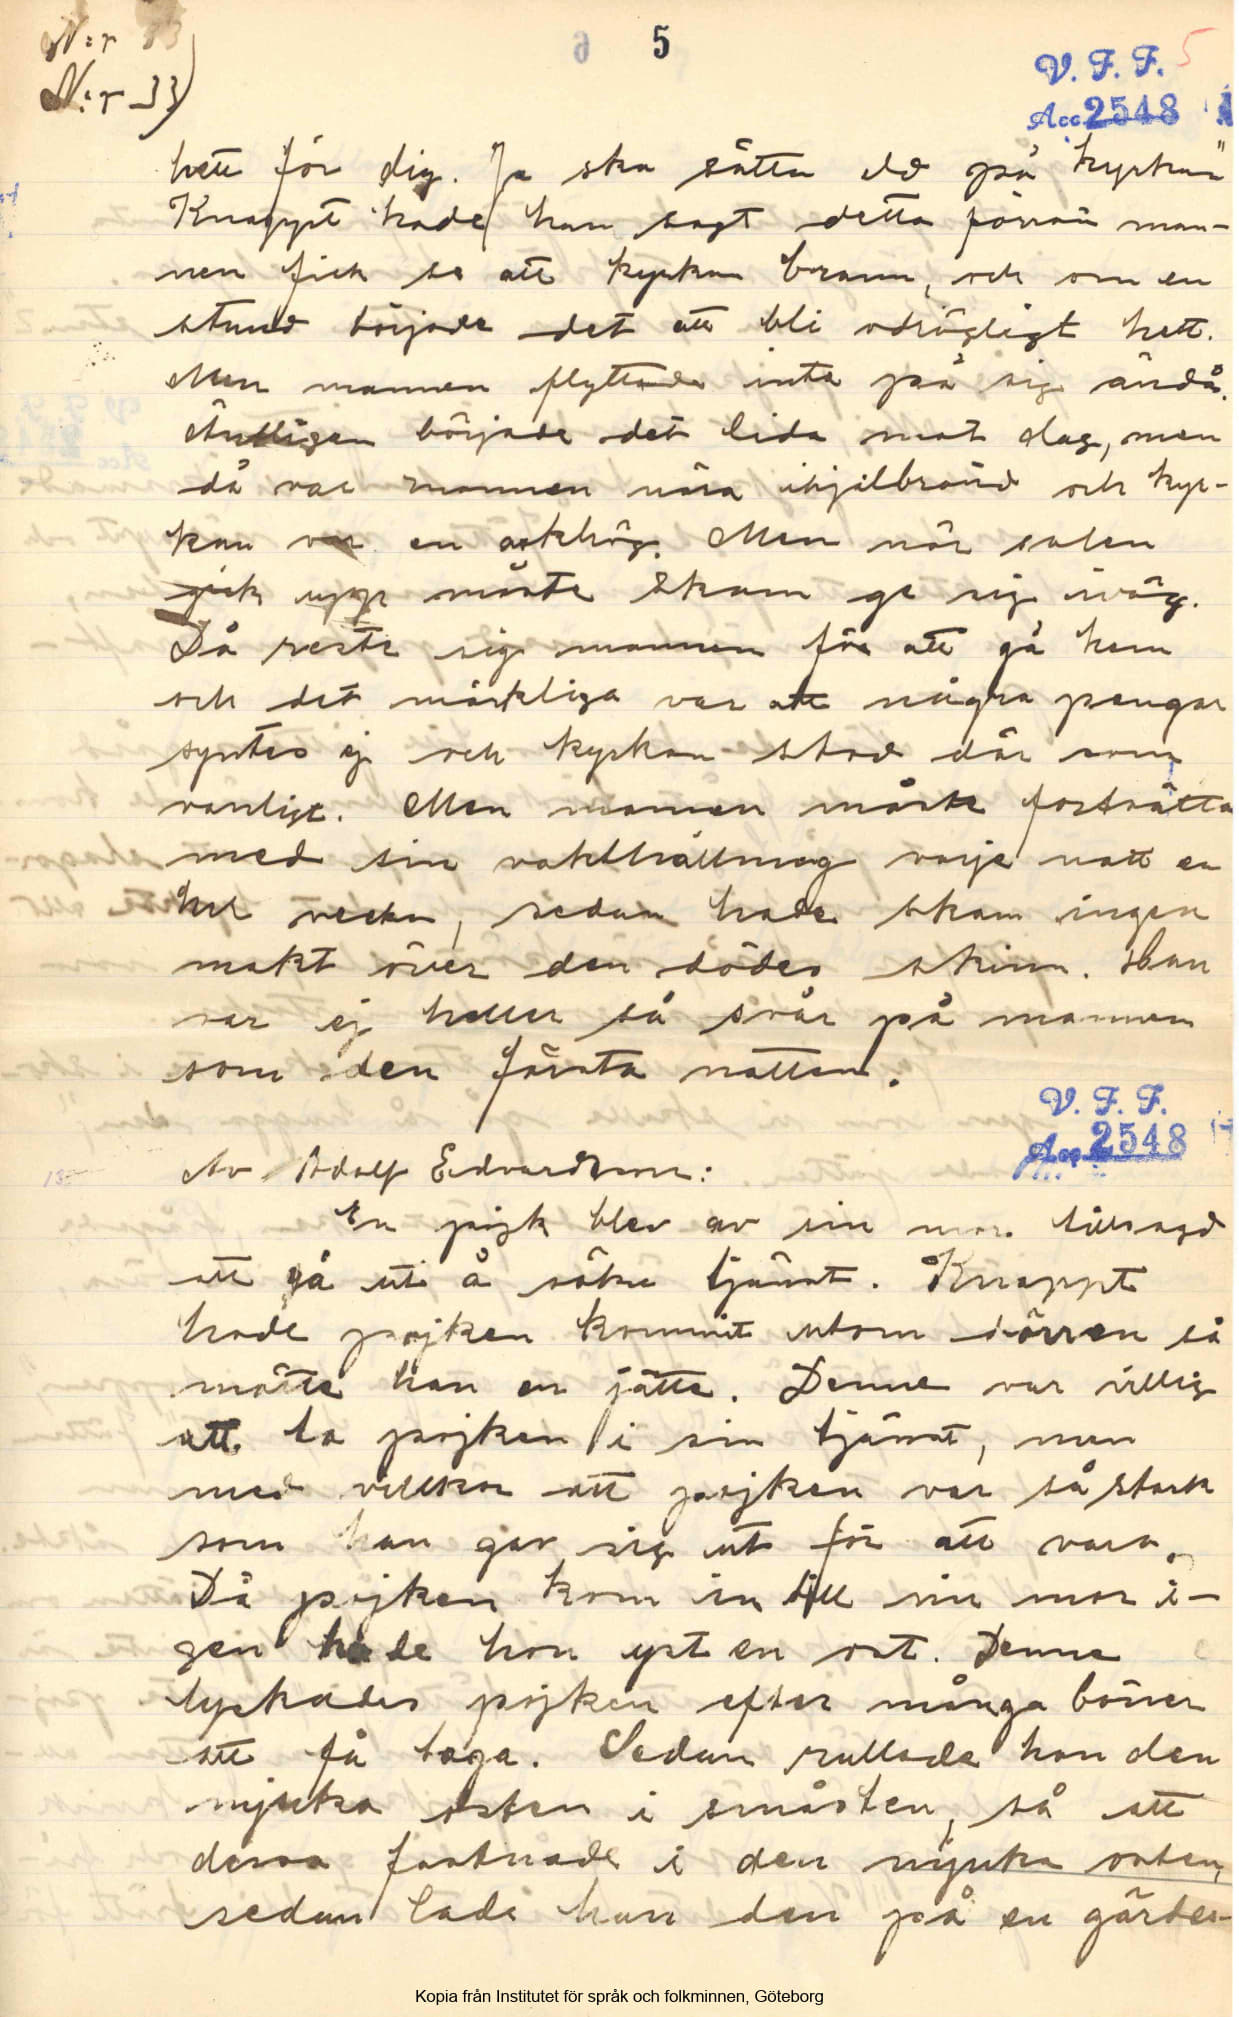 N:r 33
N:r 33)
5
5
V. F. F.
Acc 2548
hett för dig. Ja ska sätta eld på kyrkan"
Knappt hade han sagt detta förrän man-
nen fick se att kyrkan brann, och om en
stund började det att bli odrägligt hett.
Men mannen flyttade inte på sig ändå.
Äntligen började det lida mot dag, men
då var mannen nära ihjälbränd och kyr-
kan var en askhög. Men när solen
gick upp måste skam ge sig iväg.
Då reste sig mannen för att gå hem
och det märkliga var att några pengar
syntes ej och kyrkan stod där som
vanligt. Men mannen måste fortsätta
med sin vakthållning varje natt en
hel vecka, sedan hade skam ingen
makt över den dödes skinn. Han
var ej heller så svår på mannen
som den första natten.
V. F. F.
Acc 2548
Av Adolf Edvardsson:
En pojk blev av sin mor tillsagd
att gå ut å söka tjänst. Knappt
hade pojken kommit utom dörren så
mötte han en jätte. Denne var villig
att ta pojken i sin tjänst, men
med villkor att pojken var så stark
som han gav sig ut för att vara.
Då pojken kom in till sin mor i-
gen hade hon yst en ost. Denne
lyckades pojken efter många böner
att få taga. Sedan rullade han den
mjuka osten i småsten, så att
dessa fastnade i den mjuka osten,
sedan lade han den på en gärdes-
Kopia från Institutet för språk och folkminnen, Göteborg